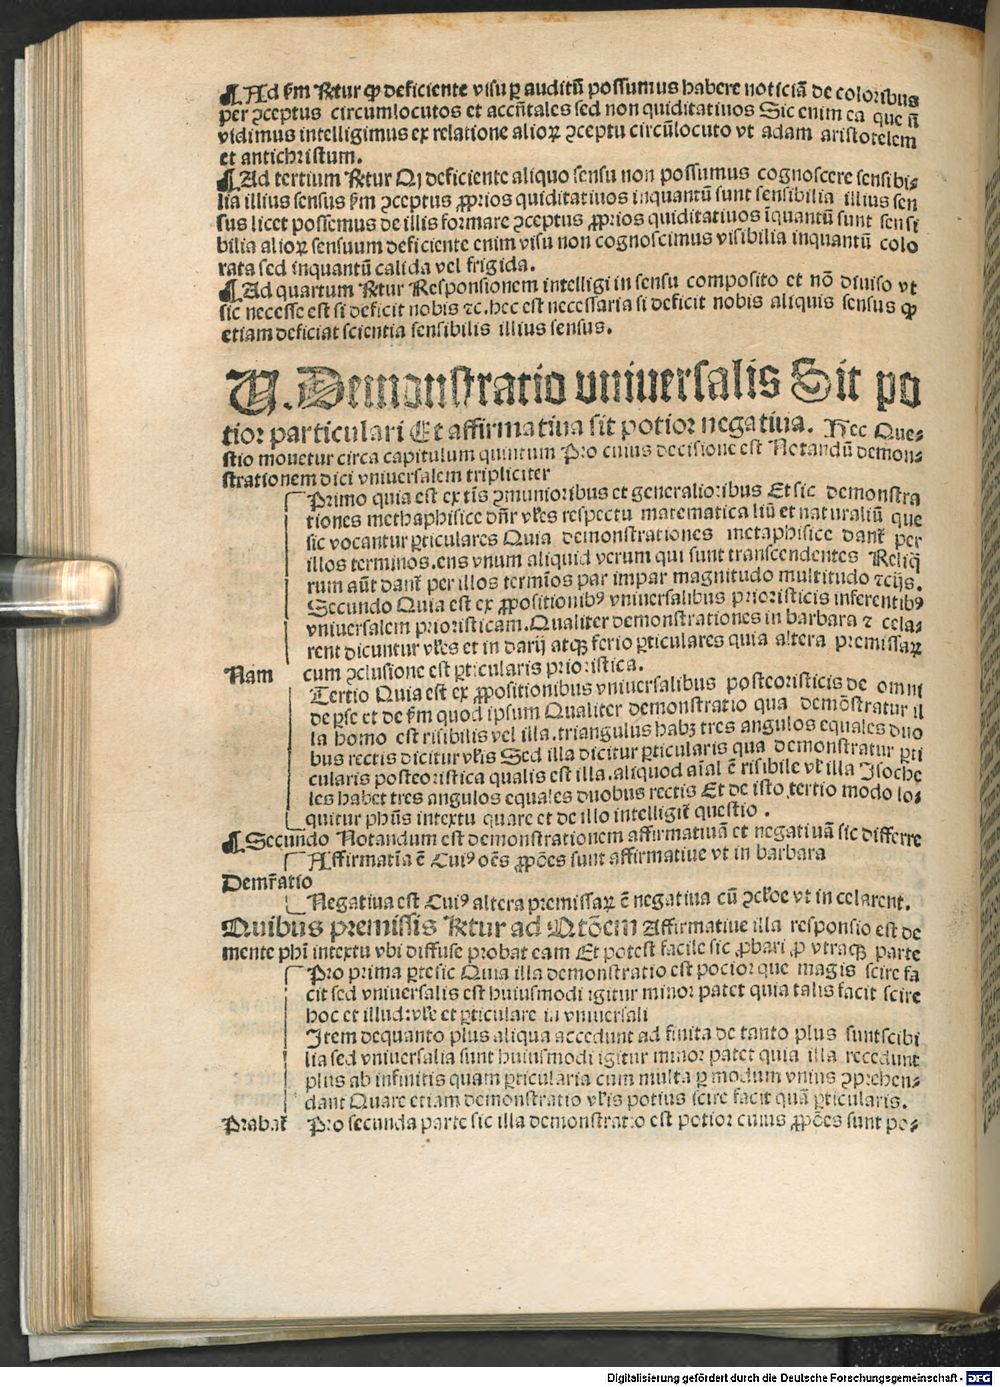 ¶ Ad ſꝫm ꝛ̃tur ꝙ deficiente viſu ꝑ auditū poſſumus habere noticiā de coloribus
per ꝯceptus circumlocutos et accn̄tales ſed non quiditatiuos Sic enim ea que n̄
vidimus intelligimus ex relatione alioꝝ ꝯceptu circūlocuto vt adam ariſtotelem
et antichriſtum.
¶ Ad tertium ꝛ̃tur Qꝫ deficiente aliquo ſenſu non poſſumus cognoſcere ſenſibi⸗
lia illius ſenſus ſꝫm ꝯceptus ꝓprios quiditatiuos inquantū ſunt ſenſibilia illius ſen
ſus licet poſſemus de illis formare ꝯceptus ꝓprios quiditatiuos īquantū ſunt ſenſi
bilia alioꝝ ſenſuum deficiente enim viſu non cognoſcimus viſibilia inquantū colo
rata ſed inquantū calida vel frigida.
¶ Ad quartum ꝛ̃tur Reſponſionem intelligi in ſenſu compoſito et nō diuiſo vt
ſic neceſſe eſt ſi deficit nobis ⁊c. hec eſt neceſſaria ſi deficit nobis aliquis ſenſus ꝙ
etiam deficiat ſcientia ſenſibilis illius ſenſus.
V. Demonſtratio vniuerſalis Sit po
tior particulari Et affirmatiua ſit potior negatiua. Hec Que⸗
ſtio mouetur circa capitulum quintum Pro cuius deciſione eſt Notandū demon⸗
ſtrationem dici vniuerſalem tripliciter
Primo quia eſt ex tīs ꝯmunioribus et generalioribus Et ſic demonſtra
tiones methaphiſice dn̄r vl̄es reſpectu matematica liū et naturaliū que
ſic vocantur ꝑticulares Quia demonſtrationes metaphiſice dant̄ per
illos terminos. ens vnum aliquid verum qui ſunt tranſcendentes Reliq̄
rum aūt dant̄ per illos termīos par impar magnitudo multitudo ⁊cijs.
Secundo Quia eſt ex ꝓpoſitionibꝰ vniuerſalibus prioriſticis inferentibꝰ
vniuerſalem prioriſticam. Qualiter demonſtrationes in barbara ⁊ cela⸗
rent dicuntur vl̄es et in darij atqꝫ ferio ꝑticulares quia altera premiſſaꝝ
Nam cum ꝯcluſione eſt ꝑticularis prioriſtica.
Tertio Quia eſt ex ꝓpoſitionibus vniuerſalibus poſteoriſticis de omni
de ꝑſe et de ſꝫm quod ipſum Qualiter demonſtratio qua demōſtratur il
la homo eſt riſibilis vel illa. triangulus habꝫ tres angulos equales duo
bus rectis dicitur vl̄is Sed illa dicitur ꝑticularis qua demonſtratur ꝑti
cularis poſteoriſtica qualis eſt illa. aliquod aīal ē riſibile vl̄ illa Iſoche
les habet tres angulos equales duobus rectis Et de iſto tertio modo lo⸗
quitur phūs intextu quare et de illo intelligit̄ queſtio.
¶ Secundo Notandum eſt demonſtrationem affirmatiuā et negatiuā ſic differre
Affirmatīa ē Cuiꝰ oēs ꝓpōes ſunt affirmatiue vt in barbara
Demr̄atio
Negatiua eſt Cuiꝰ altera premiſſaꝝ ē negatiua cū ꝯcl̄oe vt in celarent.
Quibus premiſſis ꝛ̃tur ad Qtōem Affirmatiue illa reſponſio eſt de
mente phī intextu vbi diffuſe probat eam Et poteſt facile ſic ꝓbari ꝓ vtraqꝫ parte
Pro prima ꝑte ſic Quia illa demonſtratio eſt pocior que magis ſcire fa
cit ſed vniuerſalis eſt huiuſmodi igitur minor patet quia talis facit ſcire
hoc et illud: vl̄e et ꝑticulare in vniuerſali
Item dequanto plus aliqua accedunt ad finita de tanto plus ſunt ſcibi
lia ſed vniuerſalia ſunt huiuſmodi igitur minor patet quia illa recedunt
plus ab infinitis quam ꝑticularia cum multa ꝑ modum vnius ꝯprehen⸗
dant Quare etiam demonſtratio vl̄is potius ſcire facit quā ꝑticularis.
Probat̄ Pro ſecunda parte ſic illa demonſtratio eſt potior cuius ꝓpōes ſunt po⸗
Digitalisierung gefördert durch die Deutsche Forschungsgemeinschaft - DFG